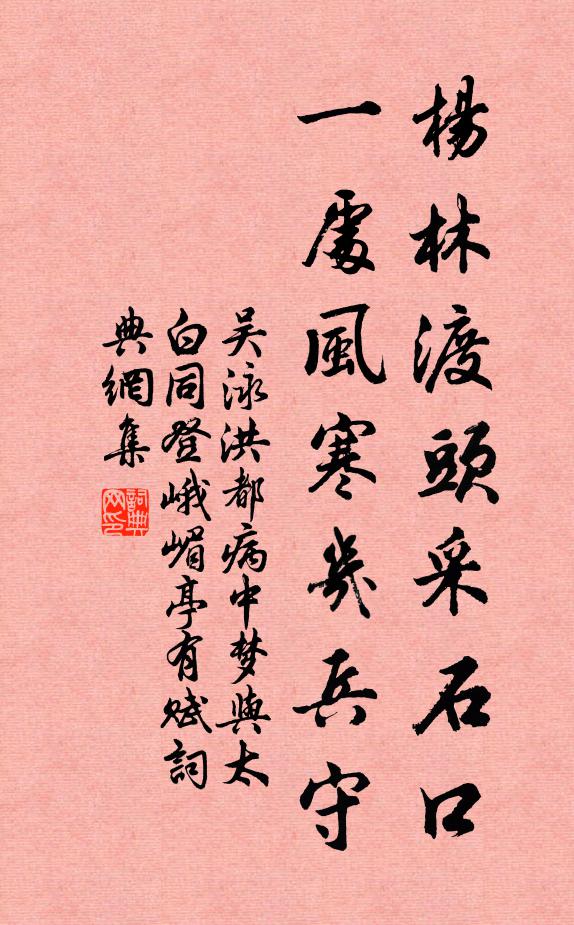 楊林渡頭采石口
一處風寒幾兵守
吴泳洪都病中梦與太
白同登峨嵋亭有赋詞
典網集
詞典网印